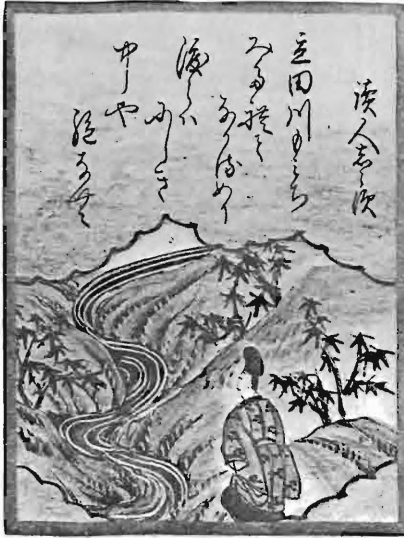 讀人志ら須
立田川もみち
みた禮て
なかるめり
渡らハ
にしき
中や
絶なむ